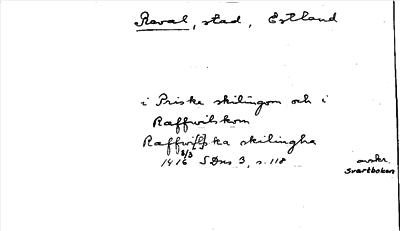 Reval, stad, Estland
i Priske skilingom och i
Raffwilskom
Raffwi[l]ska skilingha
1416 8/3 SDns 3, s. 118
avskr.
Svartboken